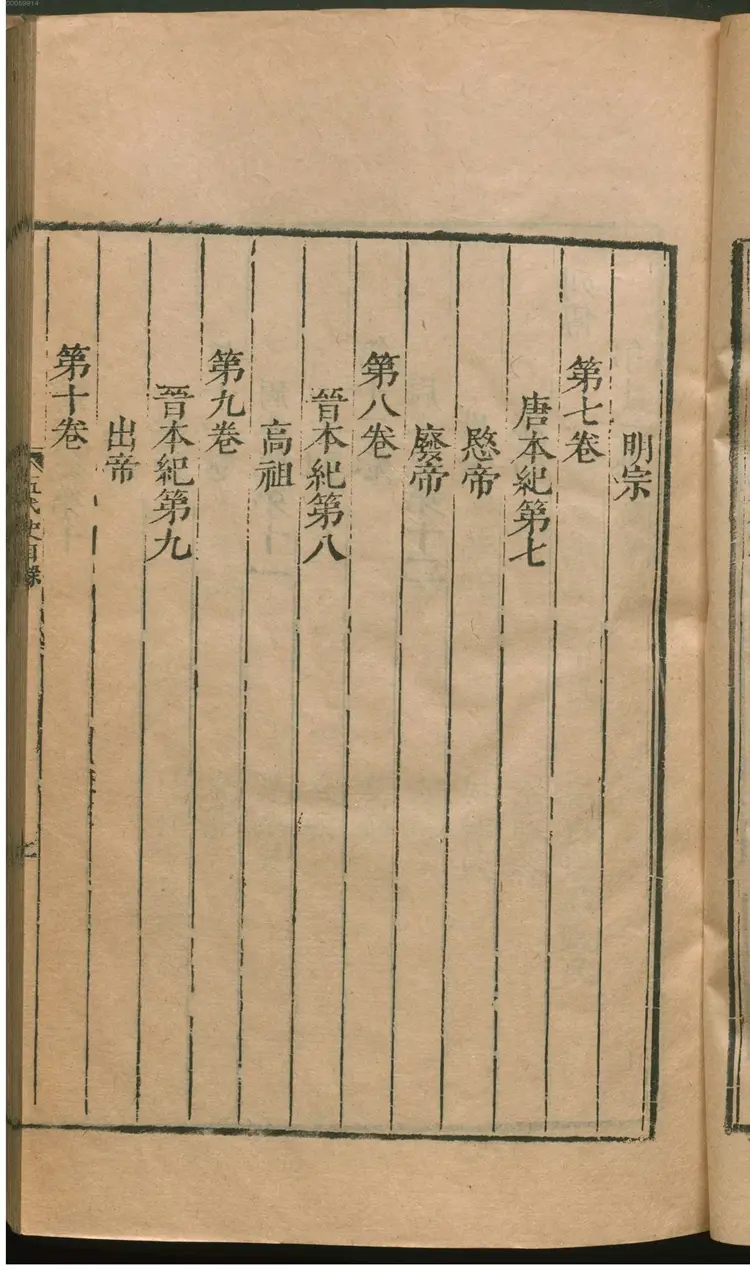 明宗
第七卷
唐本紀第七
愍帝
廢帝
第八卷
晉本紀第八
高祖
第九卷
晉本紀第九
出帝
第十卷
五代史目錄